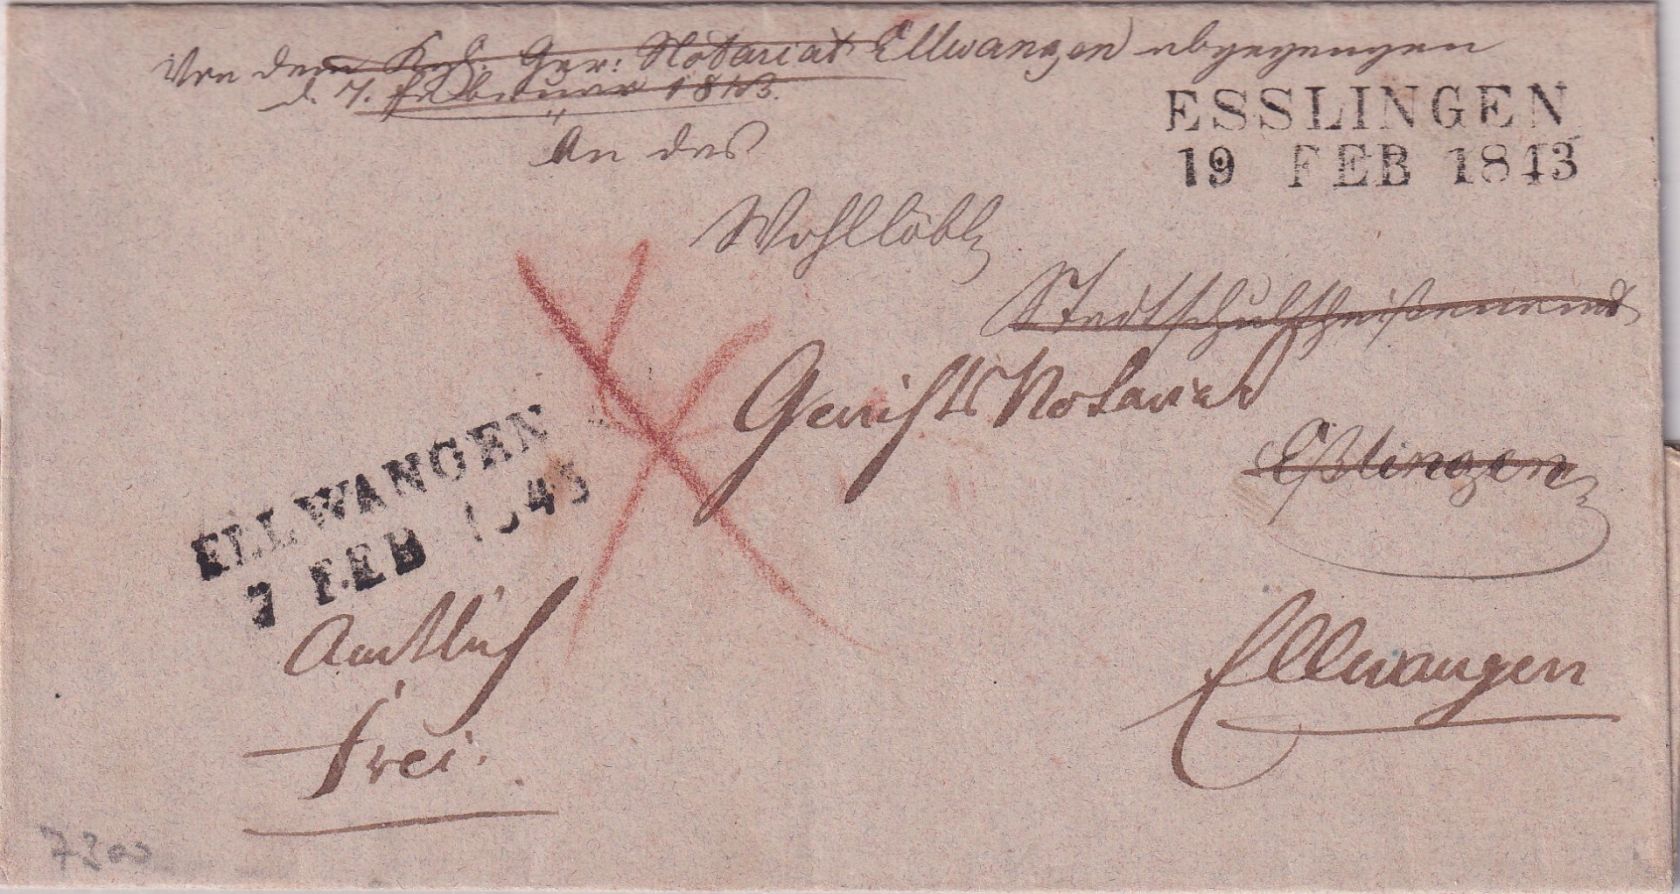 Von dem Kgl. Ger: Notariat Ellwangen abgegangen
d. 7. Februar 1843.
ESSLINGEN
19 FEB 1843
An das
Wohllöbl
Stadtschultheißenamt
Gerichts Notariat
Eßlingen
ELLWANGEN
7 FEB 1843
Amtlich
frei.
Ellwangen
7300